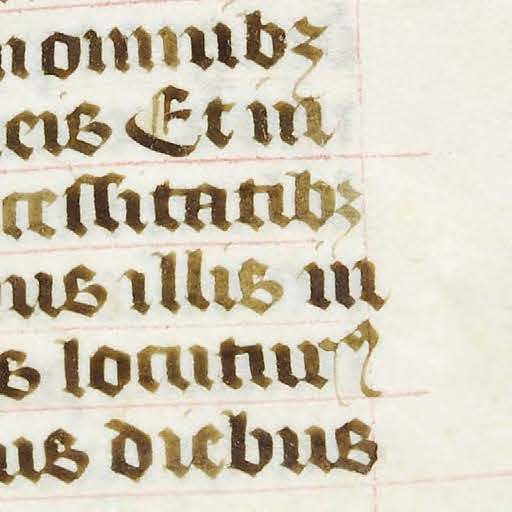 n omnibꝫ
cis Et in
cessitatibꝫ
nus illis in
s locutur᷑
us diebus